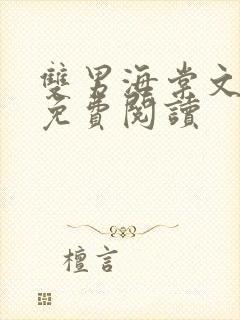 雙男海棠文
免費閱讀
檀言